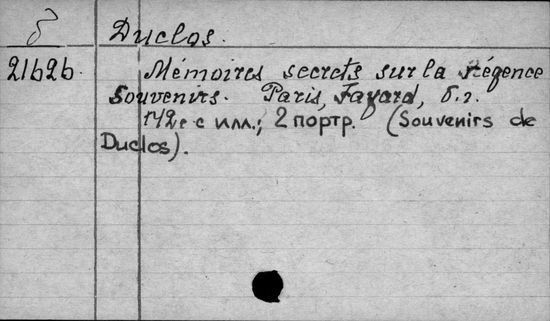 б Duclos.
21626. Mémoires secrets sur la régence
Souvenirs. Paris, Fayard, б.г.
142 с илл.; 2 портр. (Souvenirs de
Duclos).